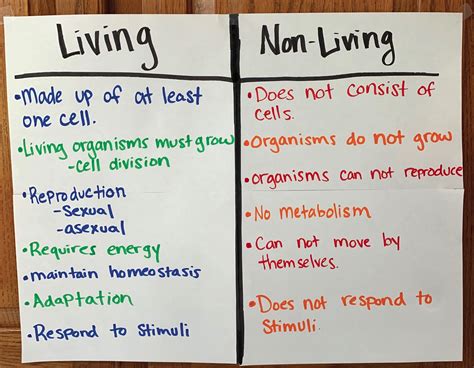 Living
•Made up of at least
one cell.
•Living organisms must grow
-cell division
•Reproduction
-Sexual
-asexual
•Requires energy
•maintain homeostasis
•Adaptation
•Respond to Stimuli
Non-Living
•Does not consist of
cells.
•Organisms do not grow
•organisms can not reproduce
•No metabolism
•Can not move by
themselves.
•Does not respond to
Stimuli.